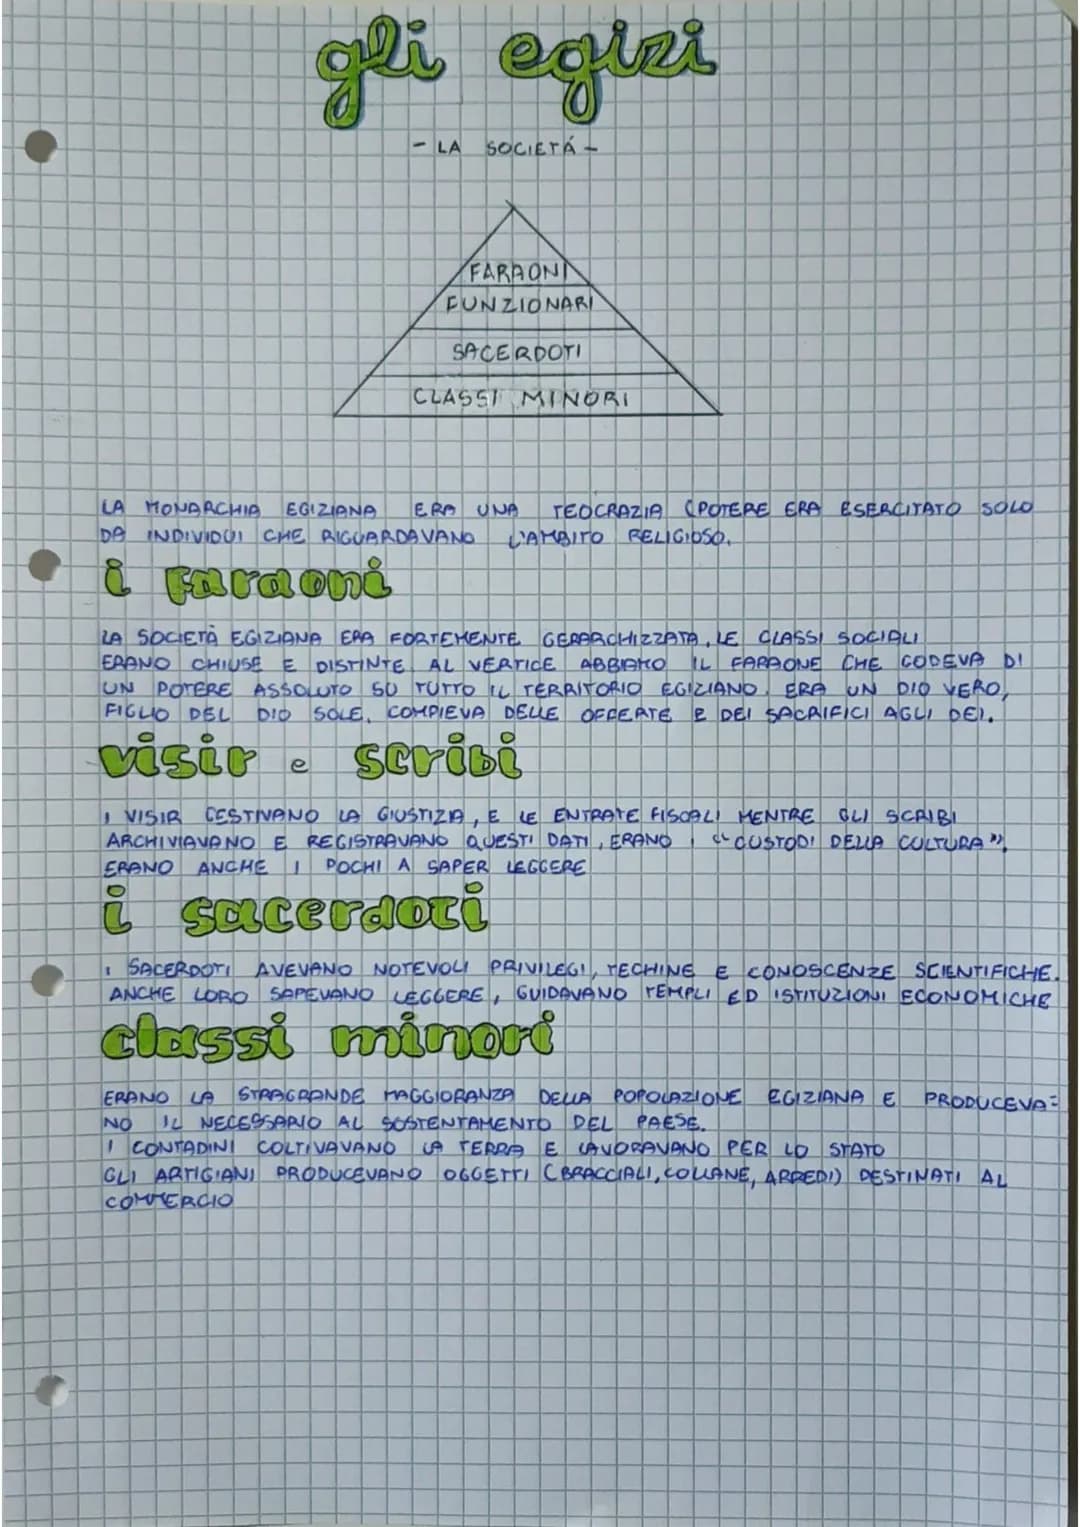 gli egizi
- LA SOCIETÁ -
FARAONI
FUNZIONARI
SACERDOTI
CLASSI MINORI
LA MONARCHIA EGIZIANA ERA UNA TEOCRAZIA (POTERE ERA ESERCITATO SOLO
DA INDIVIDUI CHE RIGUARDAVANO L'AMBITO RELIGIOSO.
i faraoni
LA SOCIETÀ EGIZIANA ERA FORTEMENTE GERARCHIZZATA, LE CLASSI SOCIALI
ERANO CHIUSE E DISTINTE. AL VERTICE ABBIAMO IL FARAONE CHE GODEVA DI
UN POTERE ASSOLUTO SU TUTTO IL TERRITORIO EGIZIANO. ERA UN DIO VERO,
FIGLIO DEL DIO SOLE. COMPIEVA DELLE OFFERTE E DEI SACRIFICI AGLI DEI.
visir e scribi
I VISIR GESTIVANO LA GIUSTIZIA, E LE ENTRATE FISCALI MENTRE GLI SCRIBI
ARCHIVIAVANO E REGISTRAVANO QUESTI DATI, ERANO I "CUSTODI DELLA CULTURA".
ERANO ANCHE I POCHI A SAPER LEGGERE
i sacerdoti
I SACERDOTI AVEVANO NOTEVOLI PRIVILEGI, TECHINE E CONOSCENZE SCIENTIFICHE.
ANCHE LORO SAPEVANO LEGGERE, GUIDAVANO TEMPLI ED ISTITUZIONI ECONOMICHE
classi minori
ERANO LA STRAGRANDE MAGGIORANZA DELLA POPOLAZIONE EGIZIANA E PRODUCEVA=
NO IL NECESSARIO AL SOSTENTAMENTO DEL PAESE.
I CONTADINI COLTIVAVANO LA TERRA E LAVORAVANO PER LO STATO
GLI ARTIGIANI PRODUCEVANO OGGETTI (BRACCIALI, COLLANE, ARREDI) DESTINATI AL
COMMERCIO